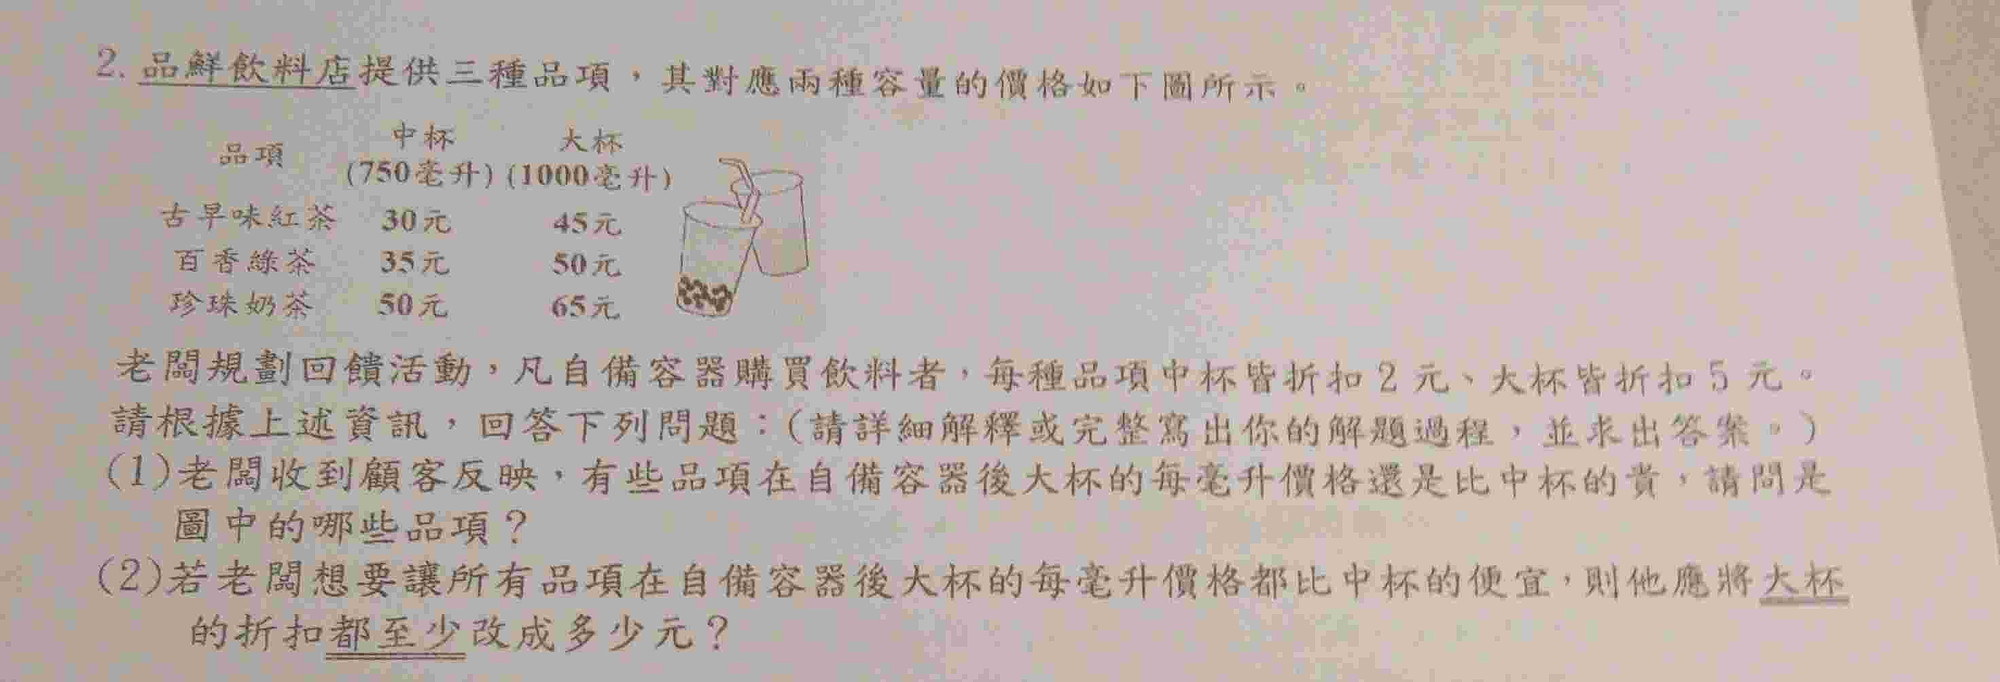 2. 品鮮飲料店提供三種品項，其對應兩種容量的價格如下圖所示。
品項 中杯 大杯
(750毫升) (1000毫升)
古早味紅茶 30元 45元
百香綠茶 35元 50元
珍珠奶茶 50元 65元
老闆規劃回饋活動，凡自備容器購買飲料者，每種品項中杯皆折扣2元、大杯皆折扣5元。
請根據上述資訊，回答下列問題：(請詳細解釋或完整寫出你的解題過程，並求出答案。)
(1)老闆收到顧客反映，有些品項在自備容器後大杯的每毫升價格還是比中杯的貴，請問是
圖中的哪些品項？
(2)若老闆想要讓所有品項在自備容器後大杯的每毫升價格都比中杯的便宜，則他應將大杯
的折扣都至少改成多少元？